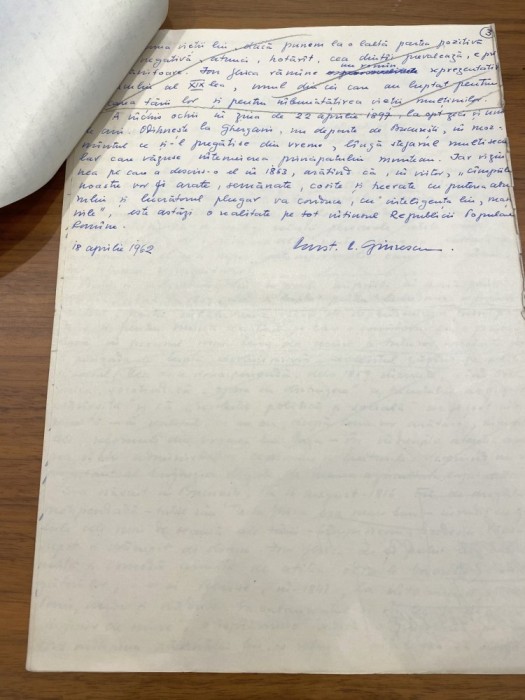 3
vieții lui, dacă punem la o laltă partea pozitivă
negativă, atunci, hotărît, cea dintîi prevalează, e pre
Ion Ghica rămîne un român reprezentativ
al XIX lea, unul din cei care au luptat pentru
țării lor și pentru îmbunătățirea vieții mulțimilor.
A închis ochii în ziua de 22 aprilie 1897, la opt zeci și unu
de ani. Odihnește la Ghergani, nu departe de București, în mor
mîntul ce și-l pregătise din vreme, lîngă stejarul multisecu
lar care văzuse întemeierea principatului muntean. Iar viziu
nea pe care o descris-o el în 1863, arătînd că, în viitor, „cîmpiile
noastre vor fi arate, semănate, cosite și treerate cu puterea abu
rului și lucrătorul plugar va conduce, cu inteligența lui, mași
nile", este astăzi o realitate pe tot întinsul Republicii Populare
Romîne.
18 aprilie 1962
Const. C. Giurescu.